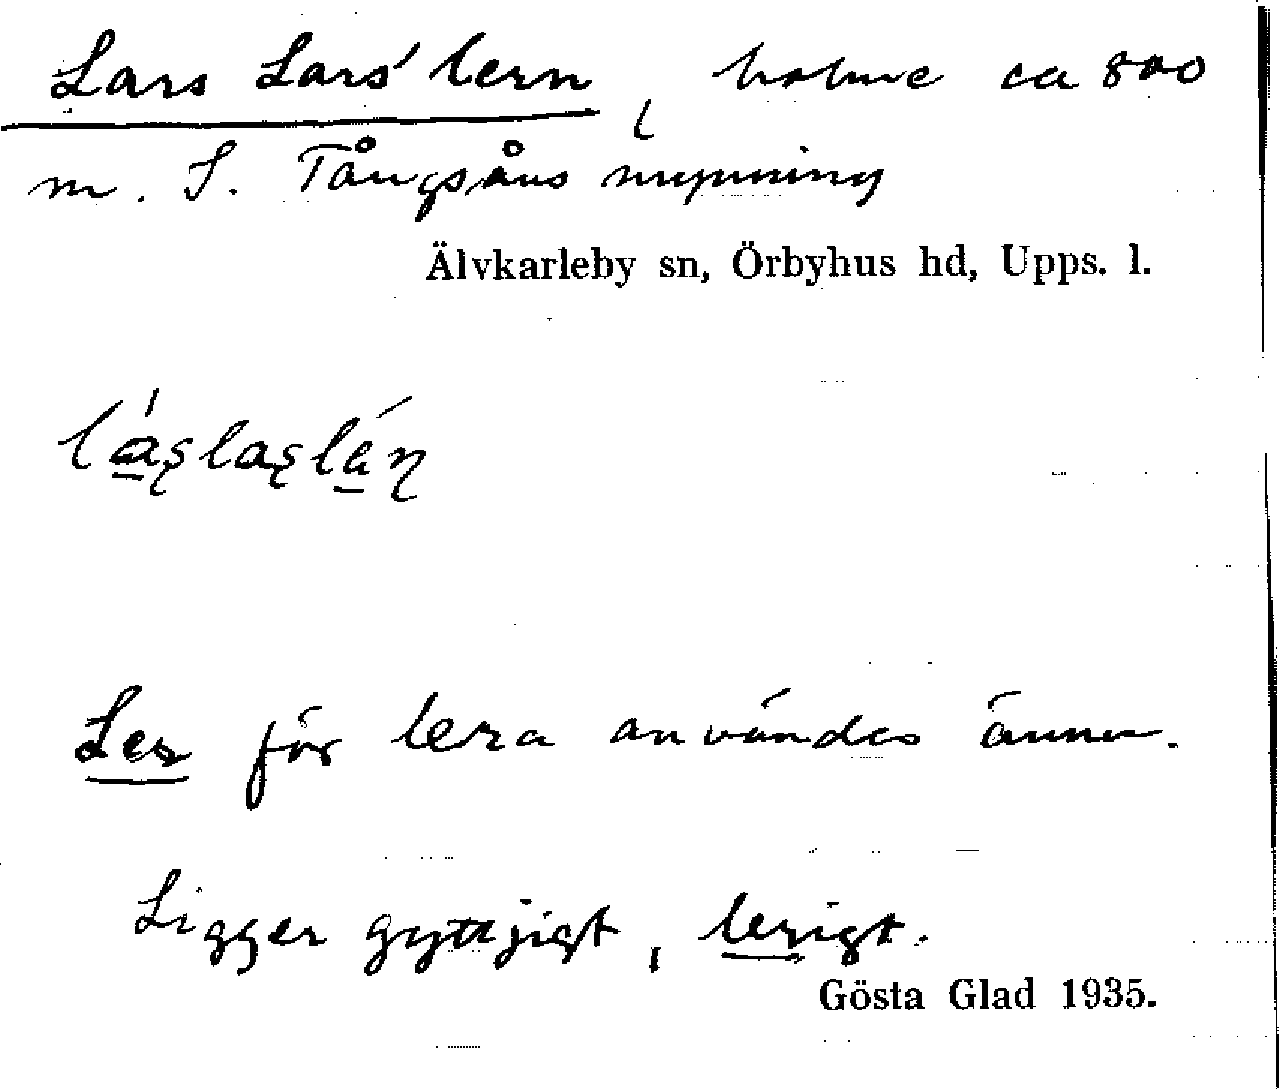 Lars Lars' lern, holme ca 800
m. S. Tångsåns mynning
Älvkarleby sn, Örbyhus hd, Upps. l.
Ler för lera användes ännu.
Ligger gyttjigt, lerigt.
Gösta Glad 1935.